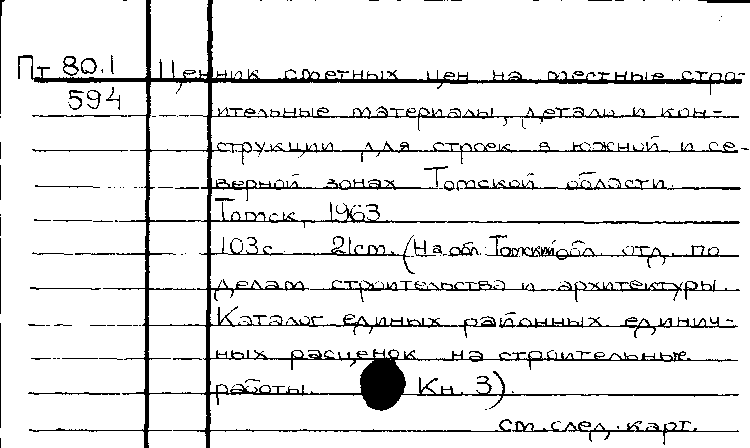 Пт 80.1 Ценник сметных цен на местные стро-
594 ительные материалы, детали и кон-
струкции для строек в южной и се-
верной зонах Томской области.
Томск, 1963
103с 21см. (На об. Томский обл. отд. по
делам строительства и архитектуры.
Каталог единых районных единич-
ных расценок на строительные
работы. Кн. 3).
см. след. карт.